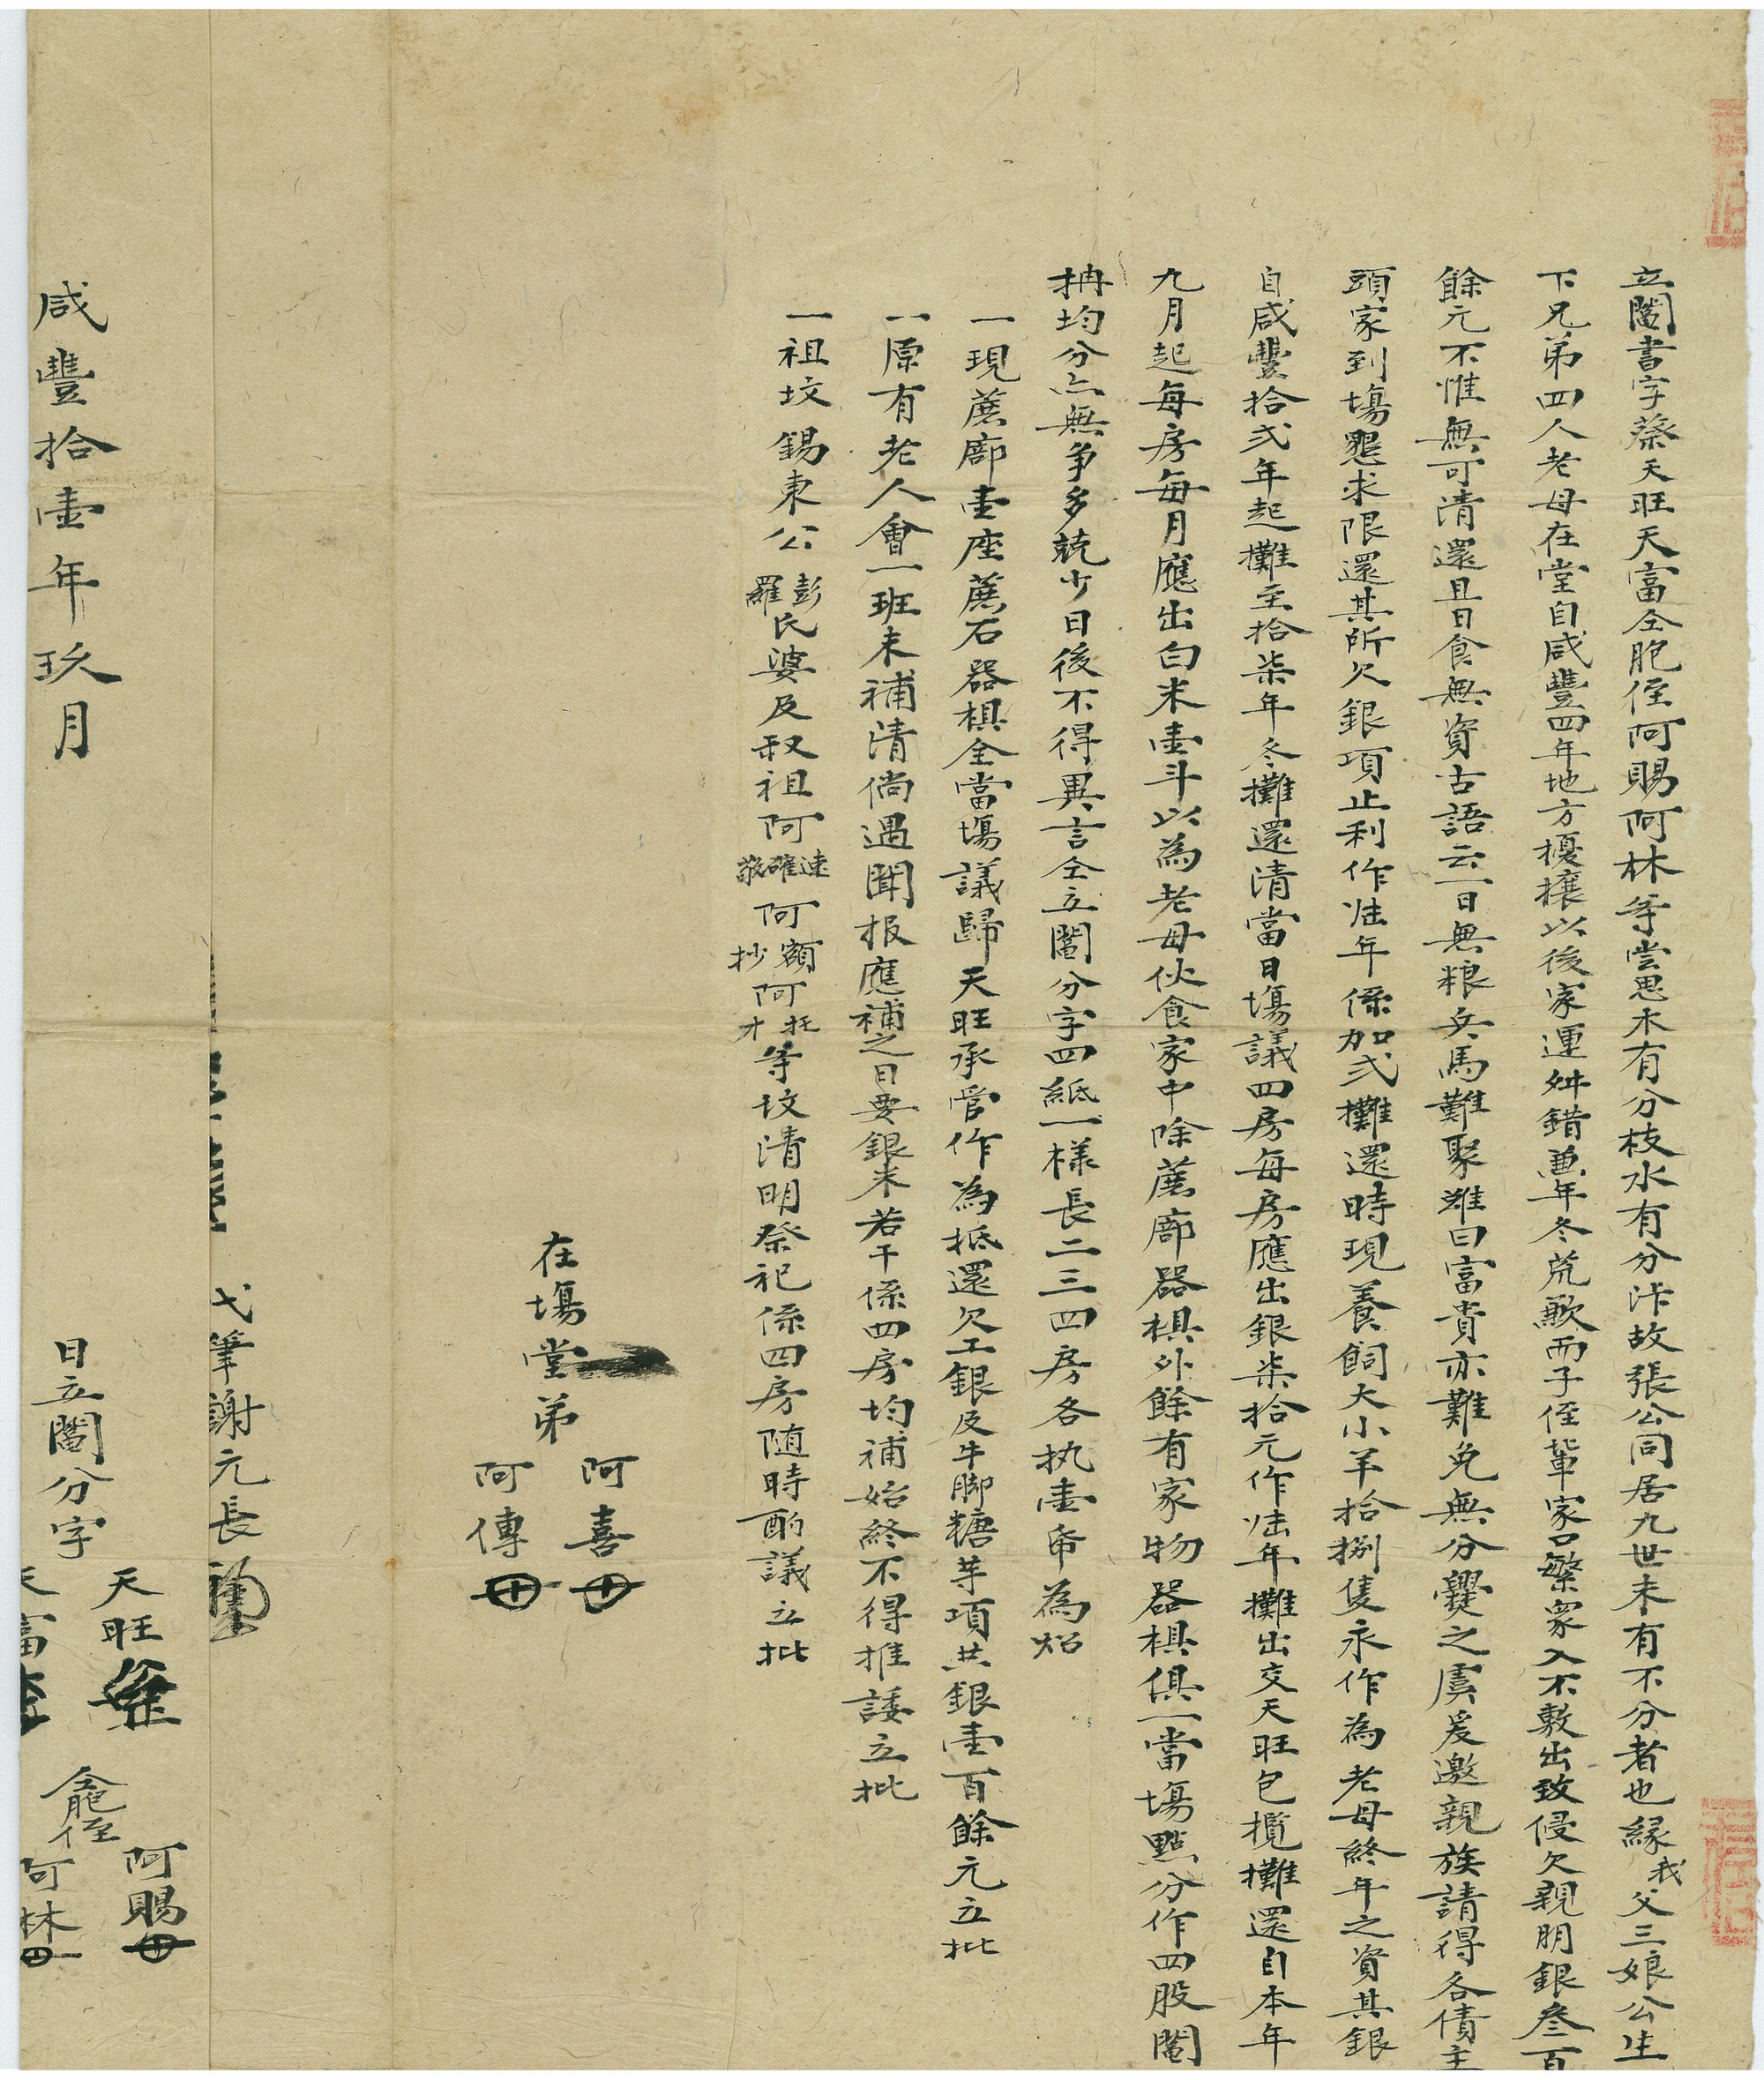 立鬮書字蔡天旺天富仝胞侄阿賜阿林等嘗思木有分枝水有分沠故張公同居九世未有不分者也緣我父三娘公生
下兄弟四人老母在堂自咸豐四年地方擾攘以後家運舛錯兼年冬荒歉而子侄輩家口繁衆入不敷出致侵欠親朋銀叁百
餘元不惟無可清還且日食無資古語云一日無粮兵馬難聚雖曰富貴亦難免無分爨之虞爰邀親族請得各債主
頭家到塲懇求限還其所欠銀項止利作陸年係加弍攤還時現養飼大小羊拾捌隻永作為老母終年之資其銀
自咸豐拾弍年起攤至拾柒年冬攤還清當日塲議四房每房應出銀柒拾元作陸年攤出交天旺包攬攤還自本年
九月起每房每月應出白米壹斗以為老母伙食家中除蔗廍器椇外餘有家物器椇俱一當塲點分作四股鬮
抩均分亦無争多兢少日後不得異言仝立鬮分字四紙一樣長二三四房各执壹帋為炤
一現蔗廍壹座蔗石器椇全當塲議歸天旺承管作為抵還欠工銀及牛脚糖芋項共銀壹百餘元立批
一原有老人會一班未補清倘遇聞报應補之日要銀米若干係四房均補始終不得推諉立批
一祖坟錫東公彭羅氏婆及叔祖阿速確敬阿額抄阿托才等坟清明祭祀係四房随時酌議立批
在塲堂弟阿喜
阿傳
弋筆謝元長
咸豐拾壹年玖月 日立鬮分字天旺
天富
仝胞侄阿賜
阿林